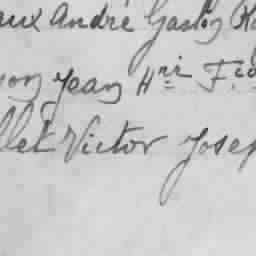 aux André Gaston
son Jean Hri
llet Victor Josep